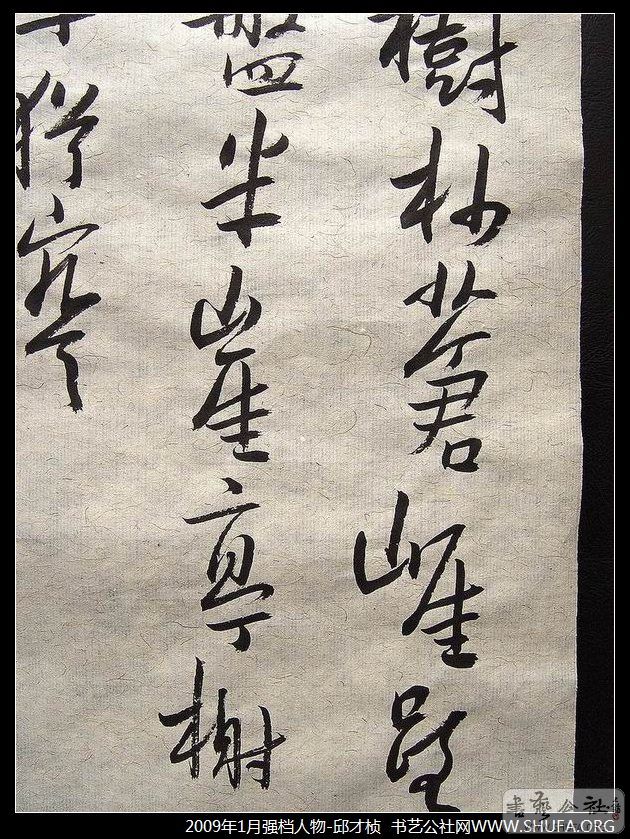 樹杪蒼崖
盤半崖亭榭
猶
書藝公社
2009年1月强档人物-邱才桢 书艺公社网WWW.SHUFA.ORG